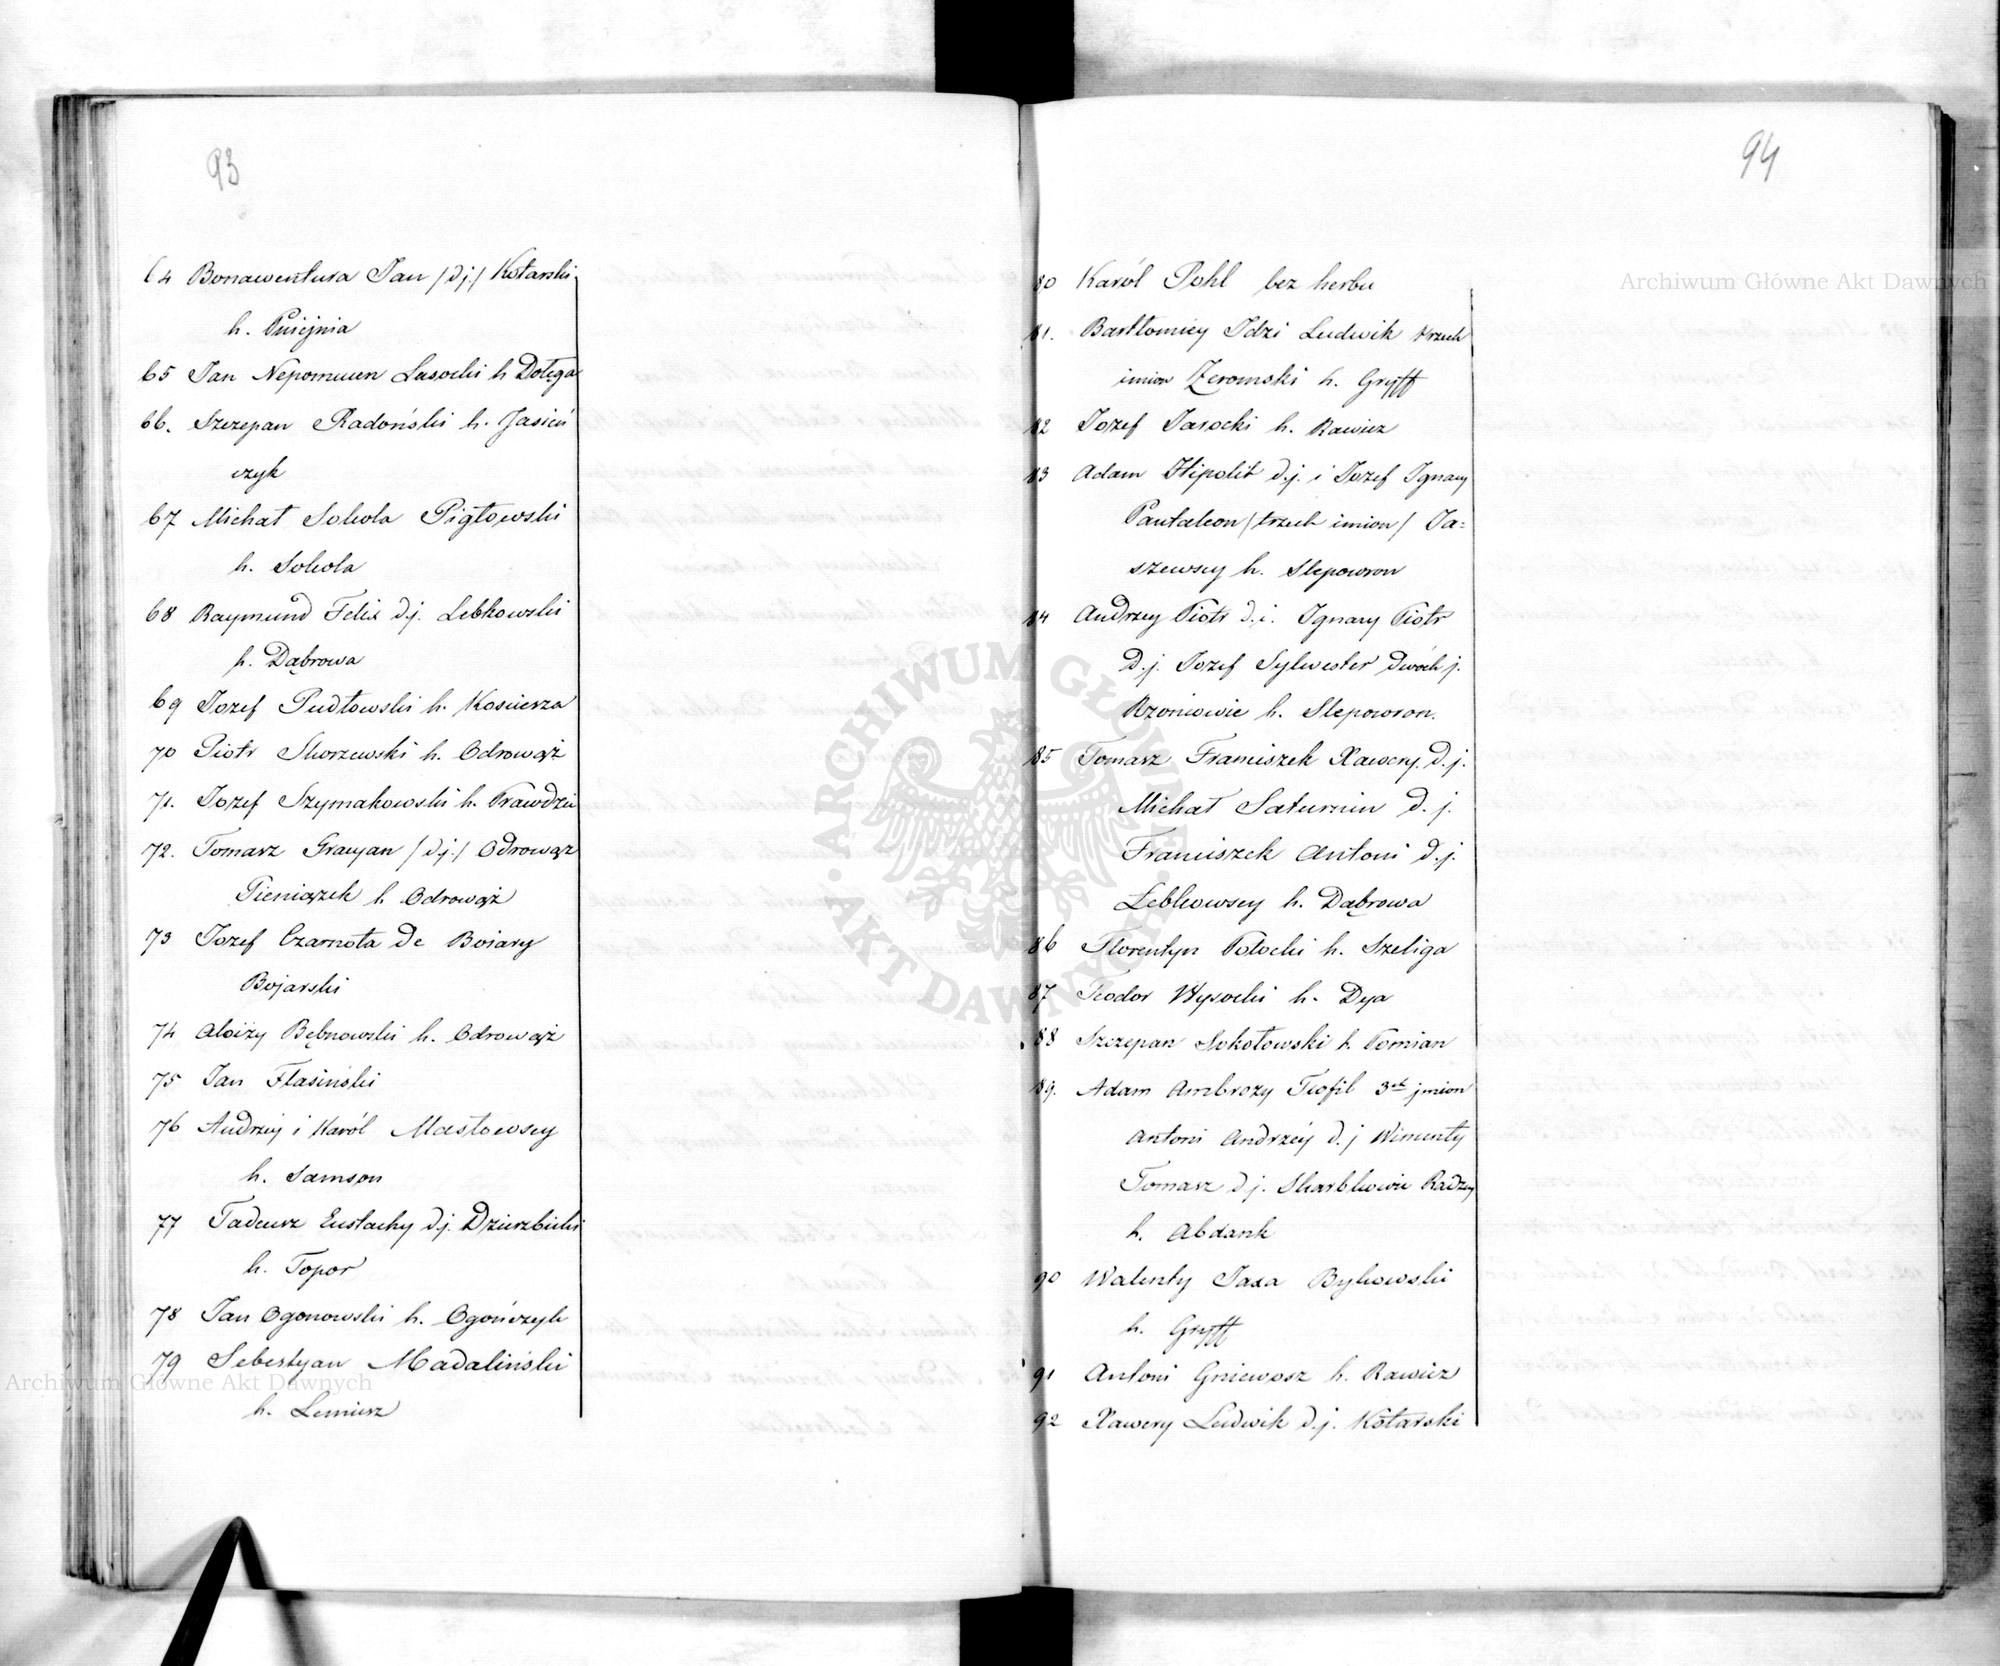 93
64 Bonawentura Jan /dj./ Kotarski
h. Pniejnia
65 Jan Nepomucen Lasocki h Dołęga
66. Szczepan Radoński h. Jasień
czyk
67 Michał Sokola Pigłowski
h. Sokola
68 Raymund Felix d.j. Lebkowski
h. Dąbrowa
69 Jozef Pudłowski h. Kościerza
70 Piotr Skorzewski h. Odrowąż
71. Jozef Szymakowski h. Prawdzic
72. Tomasz Gracyan /d.j./ Odrowąż
Pieniążek h Odrowąż
73 Jozef Czarnota de Boiary
Bojarski
74 Aloiży Bębnowski h. Odrowąż
75 Jan Flasiński
76 Andrzej i Karól Masłowscy
h. Samson
77 Tadeusz Eustachy d.j. Dzierzbicki
h. Topor
78 Jan Ogonowski h. Ogończyk
79 Sebestyan Madaliński
h. Lemiesz
94
80 Karól Pohl bez herbu
81. Bartłomiey Idzi Ludwik trzech
imion Żeromski h. Gryff
82 Jozef Jarocki h. Rawicz
83 Adam Hipolit d.j. i Jozef Ignacy
Pantaleon /trzech imion/ Ja=
szewscy h. Slepowron
84 Andrzey Piotr d.i. Ignacy Piotr
d.j. Jozef Sylwester dwóch j.
h. Slepowron.
85 Tomasz Franciszek Xawery d.j.
Michał Saturnin d.j.
Franciszek Antoni d.j.
Łebkowscy h. Dąbrowa
86 Florentyn Potocki h. Szeliga
87 Teodor Wysocki h. Dya
88 Szczepan Sokołowski h. Pomian
89. Adam Ambrozy Teofil 3ch jmion
Antoni Andrzéy d.j Wincenty
Tomasz d j. Skarbkowie Radzey
h. Abdank
90 Walenty Jaxa Bykowski
h. Gryff
91 Antoni Gniewosz h. Rawicz
92 Xawery Ludwik d.j. Kotarski
Archiwum Główne Akt Dawnych
Archiwum Główne Akt Dawnych
· ARCHIWUM GŁÓWNE · AKT DAWNYCH